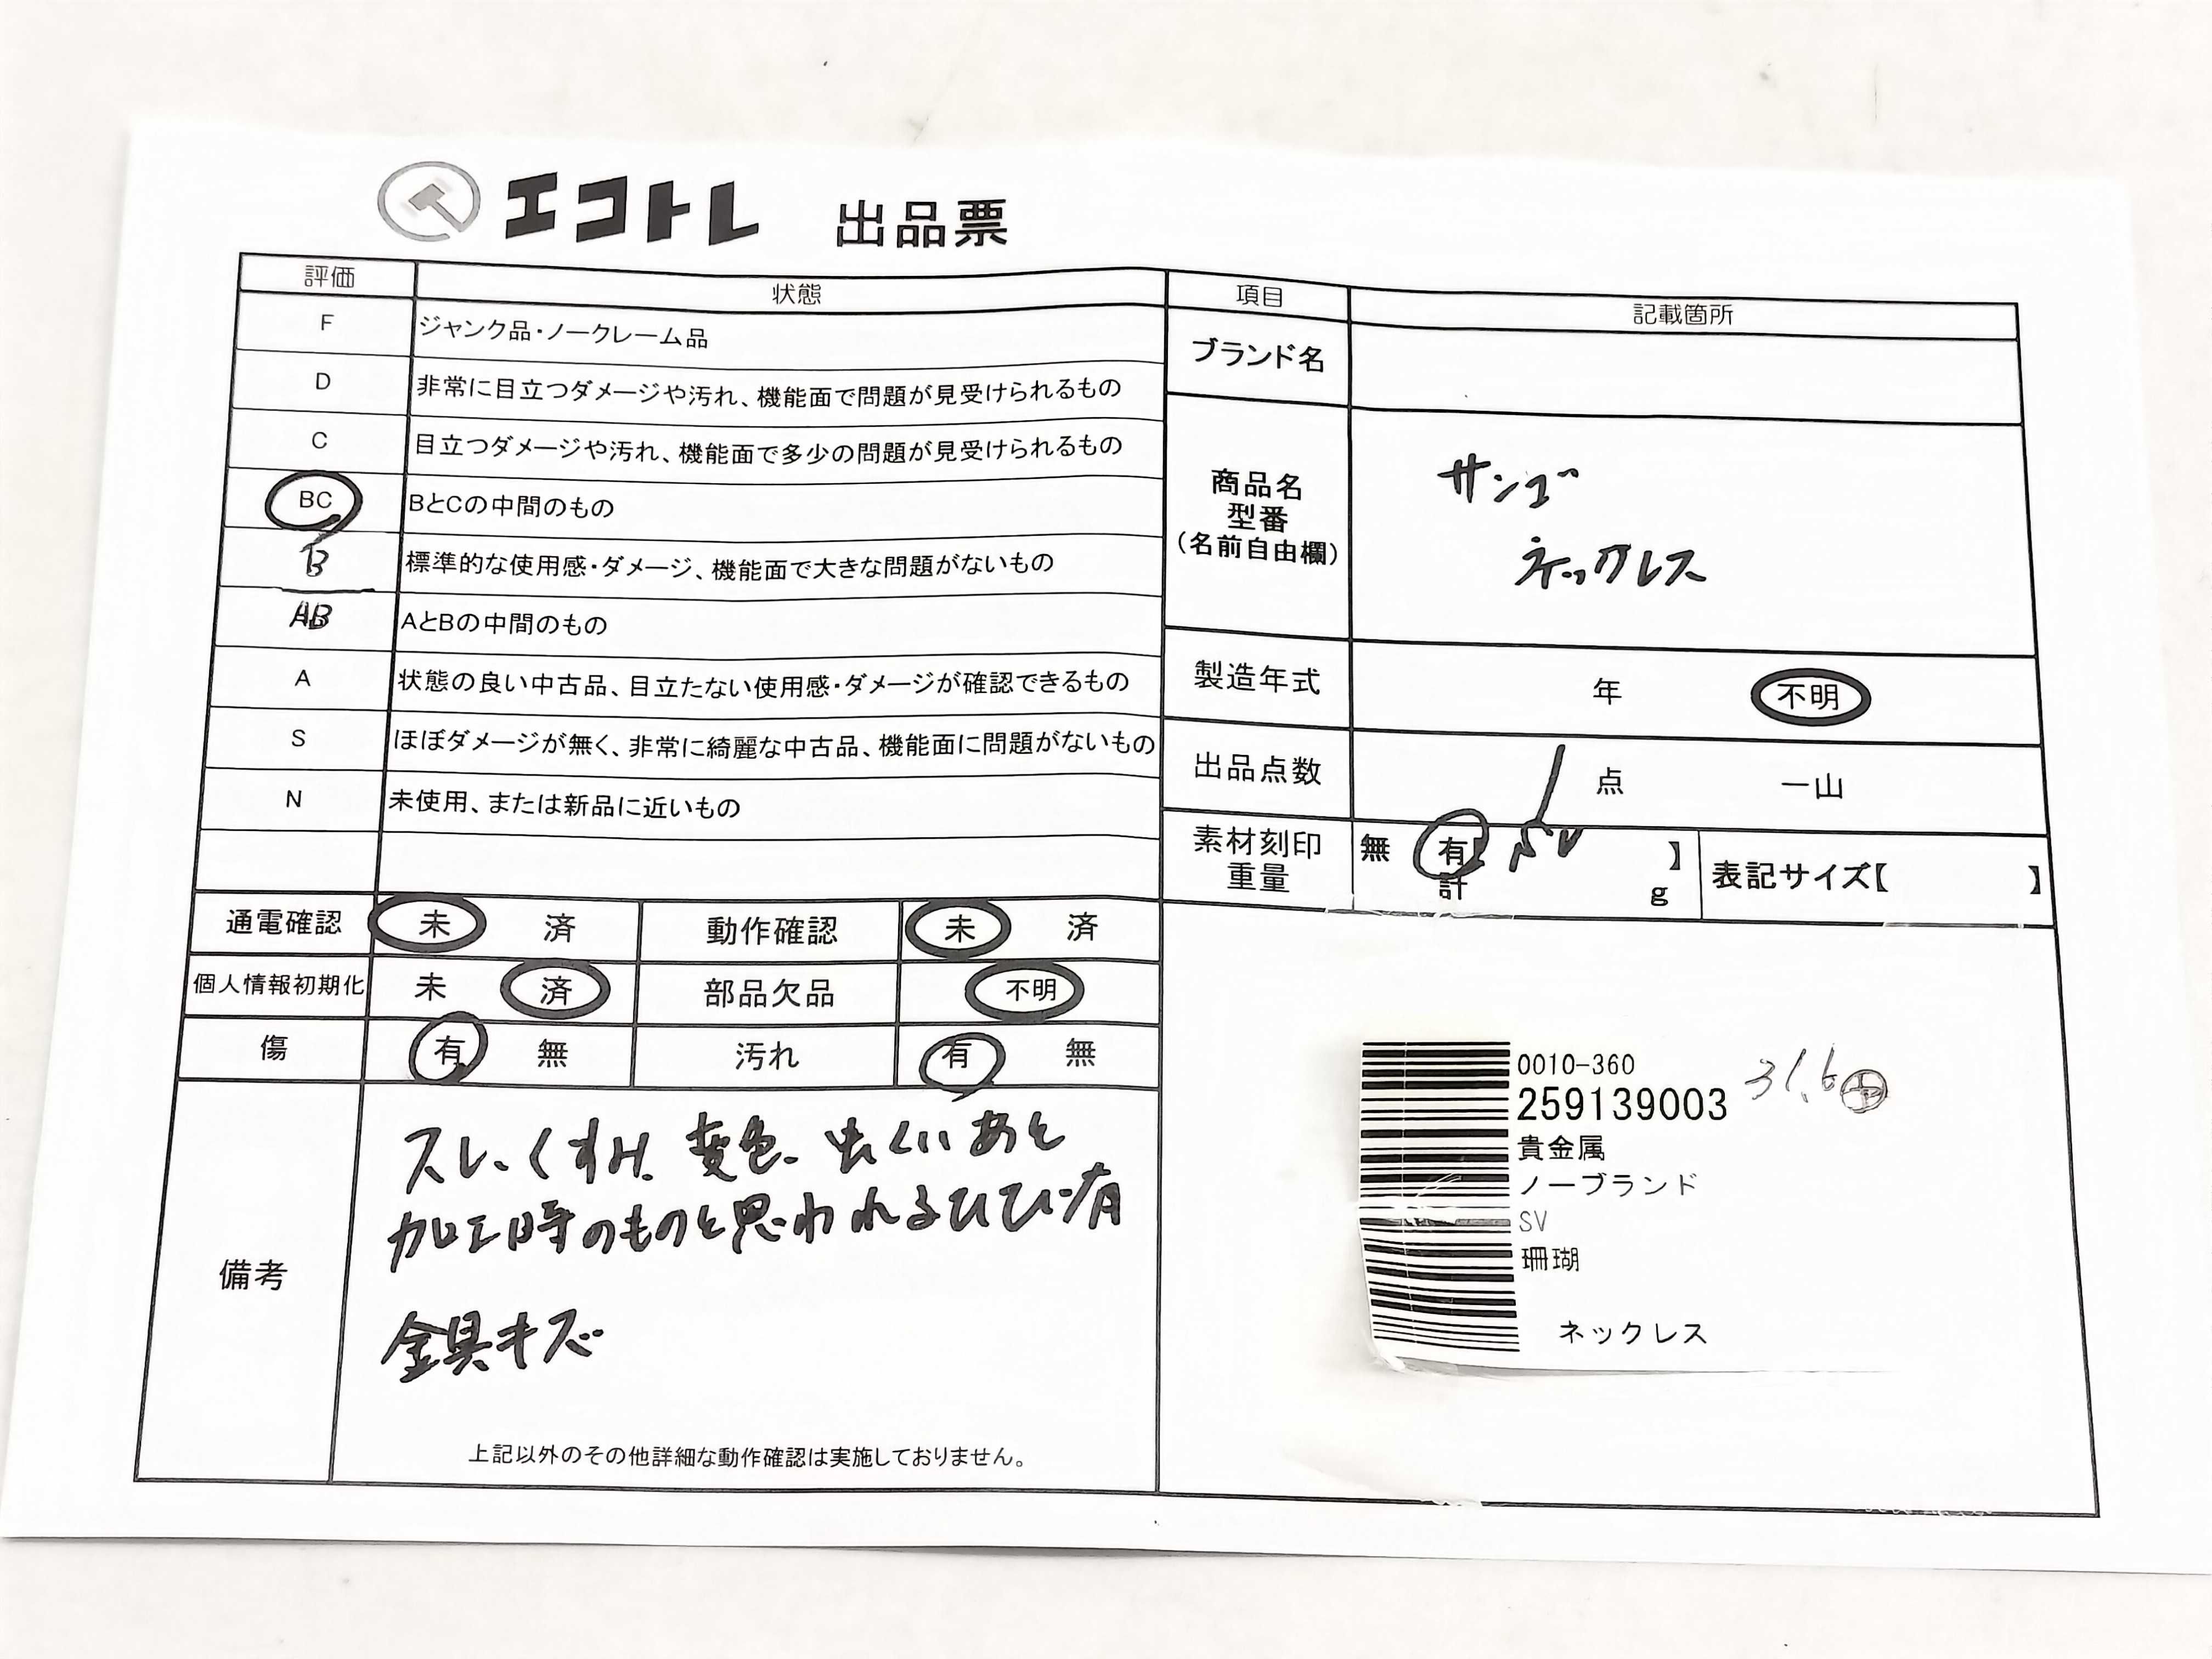 エコトレ 出品票
評価 状態
F ジャンク品・ノークレーム品
D 非常に目立つダメージや汚れ、機能面で問題が見受けられるもの
C 目立つダメージや汚れ、機能面で多少の問題が見受けられるもの
BC BとCの中間のもの
B 標準的な使用感・ダメージ、機能面で大きな問題がないもの
AB AとBの中間のもの
A 状態の良い中古品、目立たない使用感・ダメージが確認できるもの
S ほぼダメージが無く、非常に綺麗な中古品、機能面に問題がないもの
N 未使用、または新品に近いもの
通電確認 未 済 動作確認 未 済
個人情報初期化 未 済 部品欠品 不明
傷 有 無 汚れ 有 無
備考
スレ、くすみ、変色、虫くいあと
加工時のものと思われるひび有
金具キズ
上記以外のその他詳細な動作確認は実施しておりません。
項目 記載箇所
ブランド名
商品名
型番
(名前自由欄)
サンゴ
ネックレス
製造年式 年 不明
出品点数 1 点 一山
素材刻印
重量
無 有 SV 】
計 g
表記サイズ【 】
0010-360
259139003 31.6
貴金属
ノーブランド
SV
珊瑚
ネックレス